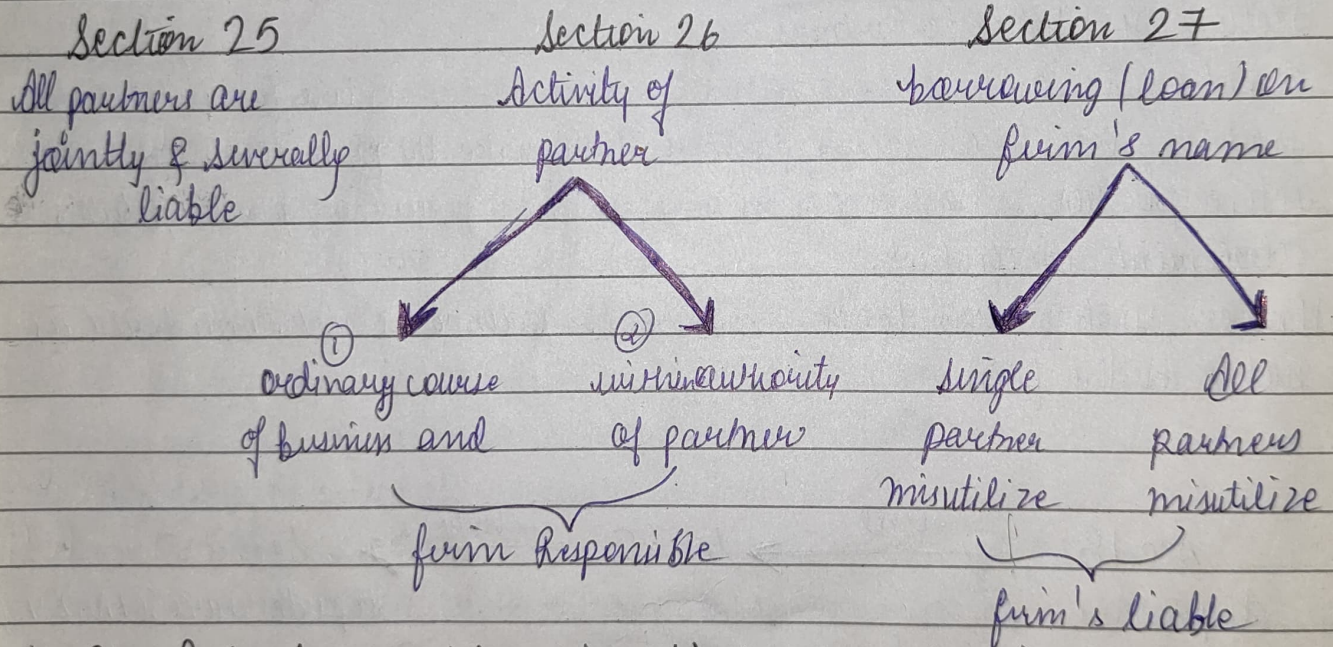 Section 25
All partners are
jointly & severally
liable
Section 26
Activity of
partner
①
ordinary course
of business and
②
within authority
of partner
firm Responsible
Section 27
borrowing (loan) on
firm's name
Single
partner
misutilize
All
partners
misutilize
firm's liable